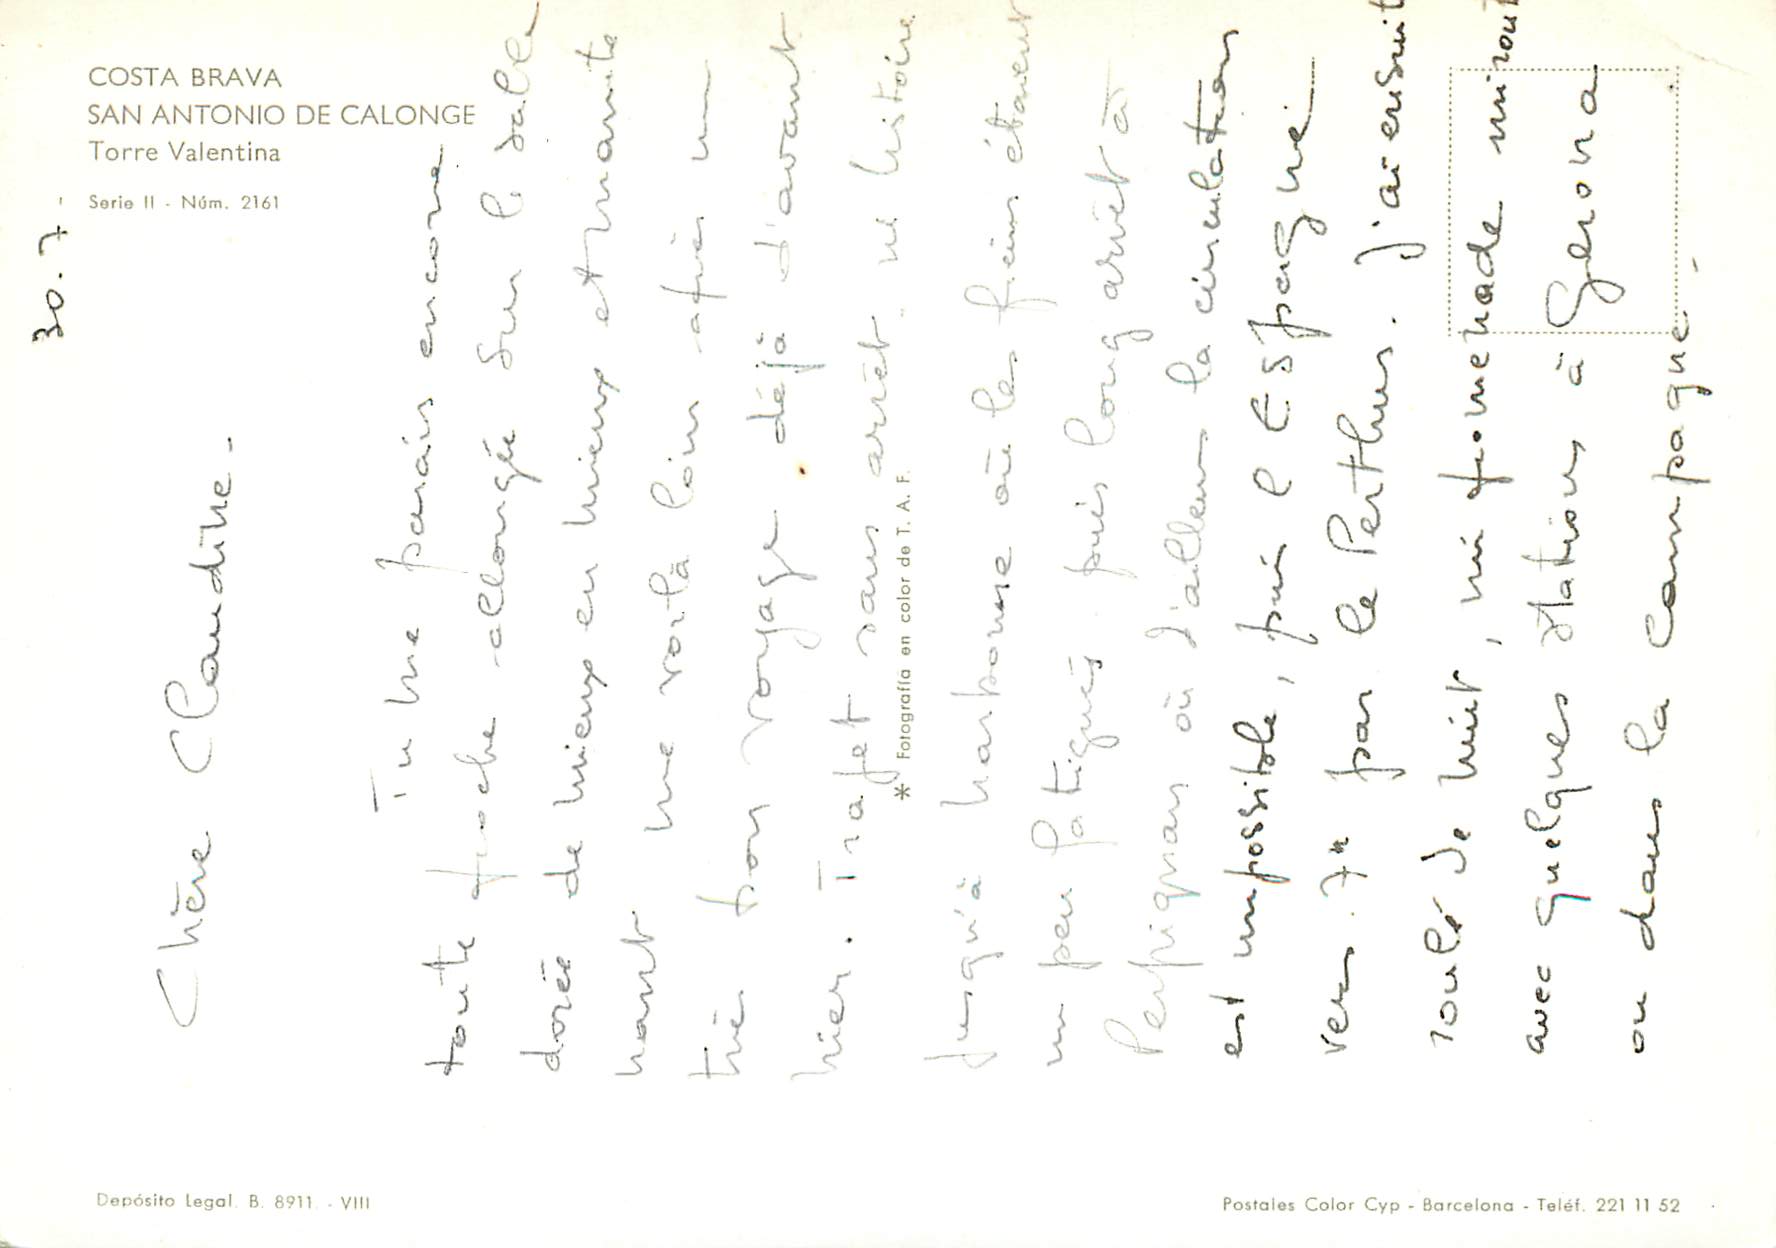 COSTA BRAVA
SAN ANTONIO DE CALONGE
Torre Valentina
Serie II - Núm. 2161
30.7
Chère Claudine -
Tu me parais encore
toute proche allongée sur le sable
doré de mieux en mieux et maintenant
me voilà loin après un
très bon voyage déjà d'avant
hier. Trajet sans arrêt ni histoire
jusqu'à Narbonne où les freins étaient
un peu fatigués puis long arrêt à
Perpignan où d'ailleurs la circulation
est impossible, puis l'Espagne
vers 7h par le Perthus. j'ai ensuite
roulé de nuit, mi promenade mi route
avec quelques stations à Gerona
ou dans la campagne -
* Fotografía en color de T. A. F.
Depósito Legal. B. 8911. - VIII
Postales Color Cyp - Barcelona - Teléf. 221 11 52